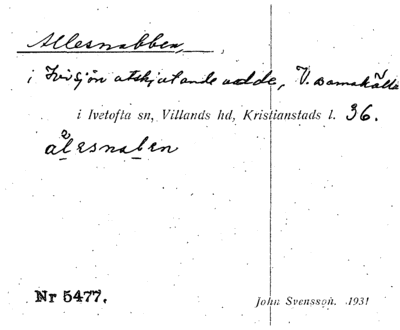 Allesnabben,
i Ivösjön utskjutande udde, V. Damakälla
i Ivetofta sn, Villands hd, Kristianstads l. 36.
ålesnaben
Nr 5477.
John Svensson. 1931